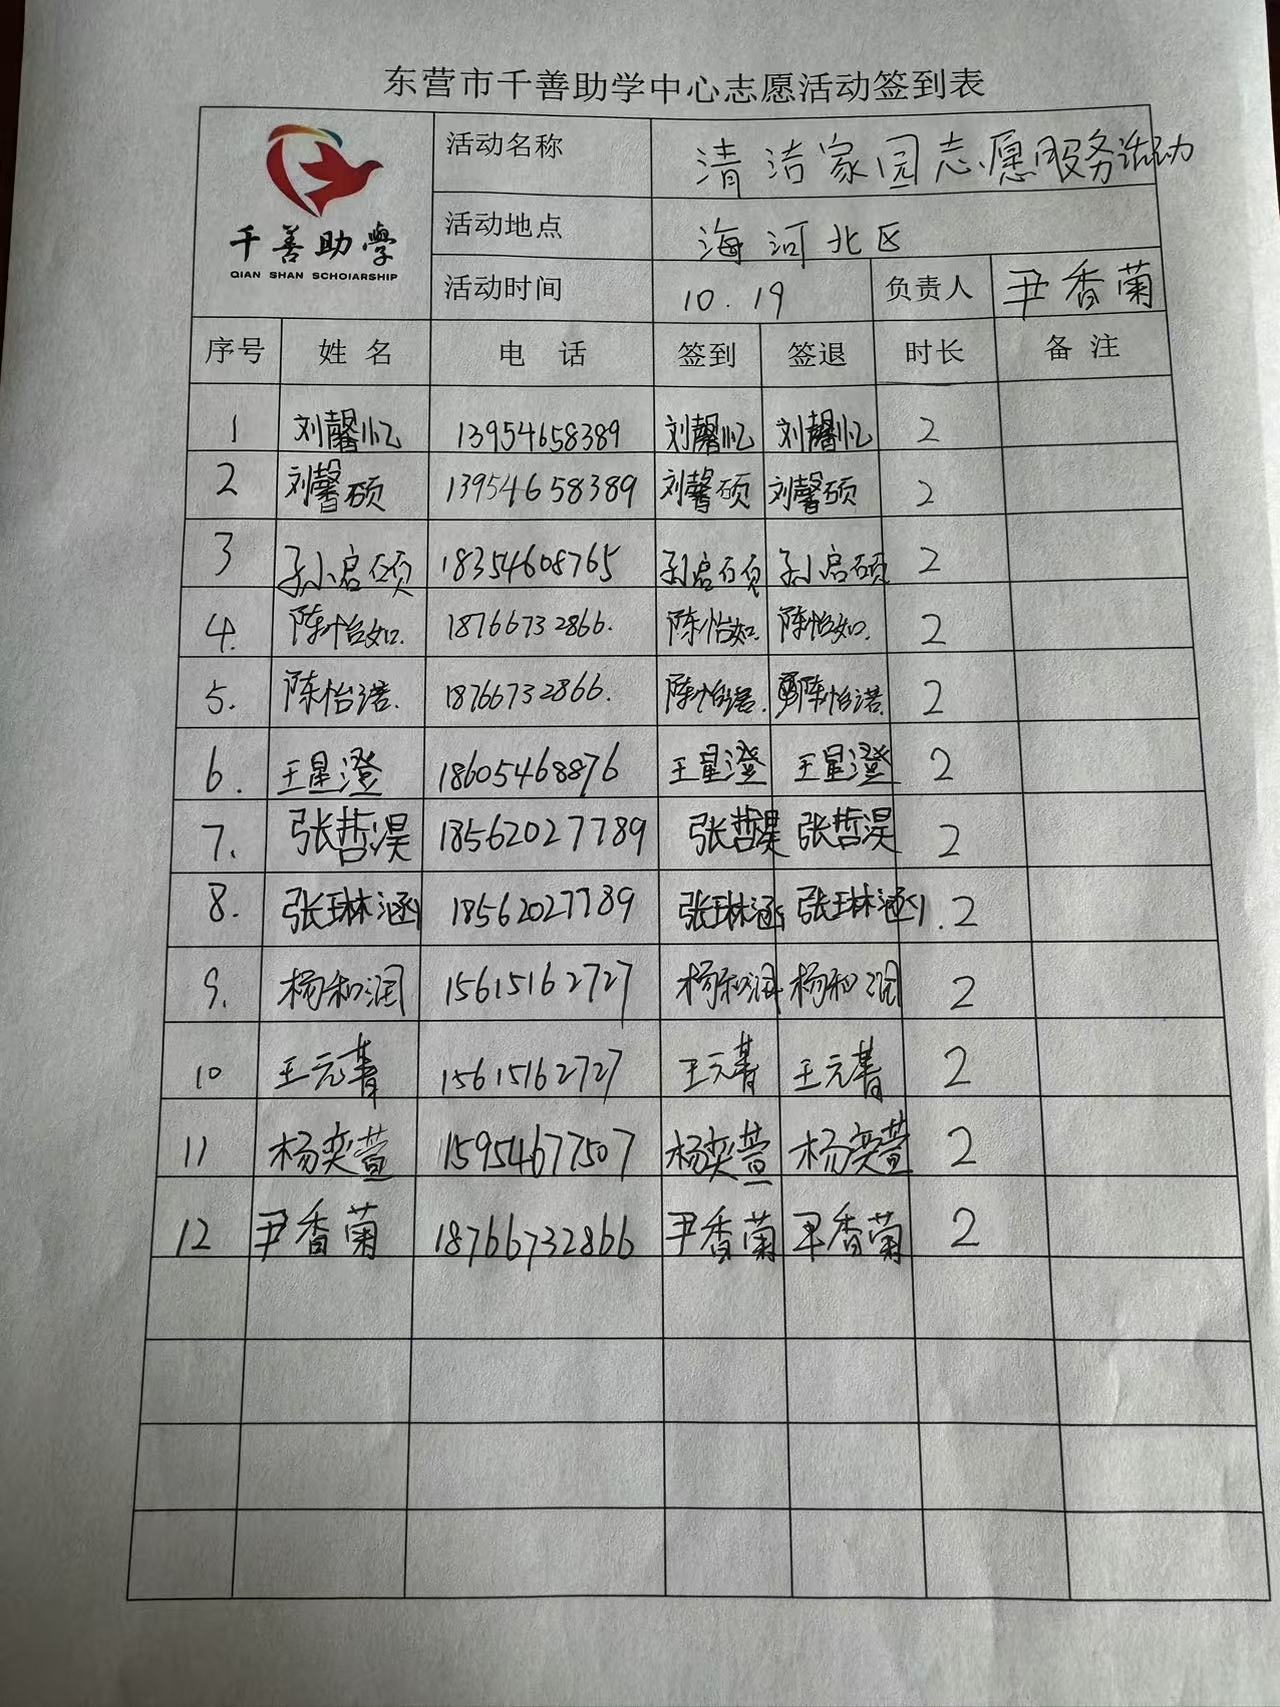 东营市千善助学中心志愿活动签到表
千善助學
QIAN SHAN SCHOlARSHIP
活动名称 清洁家园志愿服务活动
活动地点 海河北区
活动时间 10.19 负责人 尹香菊
序号 姓名 电话 签到 签退 时长 备注
1 刘馨忆 13954658389 刘馨忆 刘馨忆 2
2 刘馨硕 13954658389 刘馨硕 刘馨硕 2
3 孙启硕 18354608765 孙启硕 孙启硕 2
4. 陈怡如. 18766732866. 陈怡如. 陈怡如. 2
5. 陈怡诺. 18766732866. 陈怡诺. 陈怡诺. 2
6. 王星澄 18605468876 王星澄 王星澄 2
7. 张哲淏 18562027789 张哲淏 张哲淏 2
8. 张琳涵 18562027789 张琳涵 张琳涵 2
9. 杨和润 15615162727 杨和润 杨和润 2
10 王元菁 15615162727 王元菁 王元菁 2
11 杨奕萱 15954677507 杨奕萱 杨奕萱 2
12 尹香菊 18766732866 尹香菊 尹香菊 2